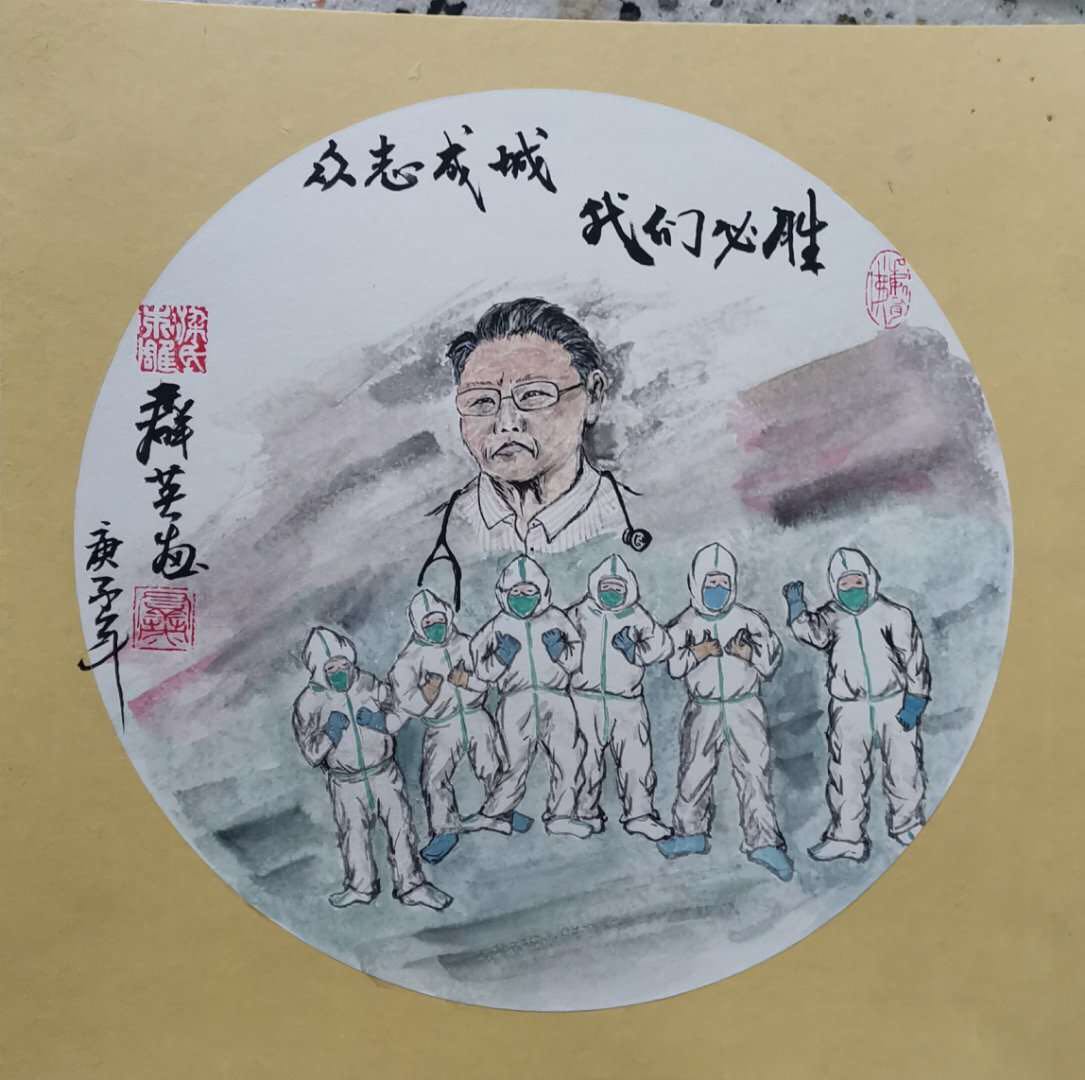 众志成城
我们必胜
群英画
庚子年